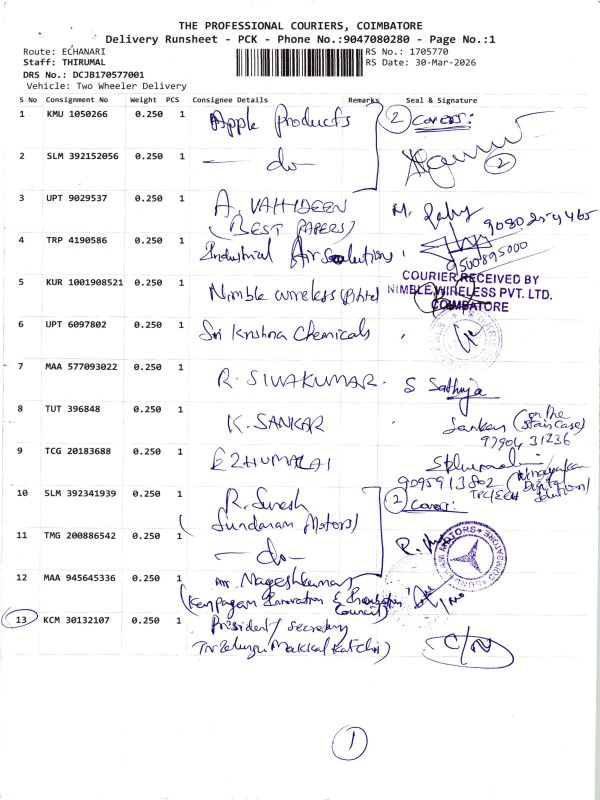 THE PROFESSIONAL COURIERS, COIMBATORE
Delivery Runsheet - PCK - Phone No.:9047080280 - Page No.:1
Route: ECHANARI
RS No.: 1705770
Staff: THIRUMAL
RS Date: 30-Mar-2026
DRS No.: DCJB170577001
Vehicle: Two Wheeler Delivery
S No Consignment No Weight PCS Consignee Details Remarks Seal & Signature
1 KMU 1050266 0.250 1 Apple Products 2 Covers:
2 SLM 392152056 0.250 1 — do — 2
3 UPT 9029537 0.250 1 A. VAHIDEEN
(BEST PAPERS) 9080254465
4 TRP 4190586 0.250 1 Industrial Air Solutions
9500895000
5 KUR 1001908521 0.250 1 Nimble wireless (P) Ltd
COURIER RECEIVED BY
NIMBLE WIRELESS PVT. LTD.
COIMBATORE
6 UPT 6097802 0.250 1 Sri Krishna Chemicals
7 MAA 577093022 0.250 1 R. SIVAKUMAR. S Sathya
8 TUT 396848 0.250 1 K. SANKAR Sankar (on the
staircase)
97904 31236
9 TCG 20183688 0.250 1 EZHUMALAI
9095913802
10 SLM 392341939 0.250 1 R. Suresh 2 Covers:
(Sundaram Motors)
11 TMG 200886542 0.250 1 — do —
12 MAA 945645336 0.250 1 Mr. Nageshkumar
(Karpagam Innovation & Incubation
Council)
13 KCM 30132107 0.250 1 President/ Secretary
Makkal Katchi) C/N
1